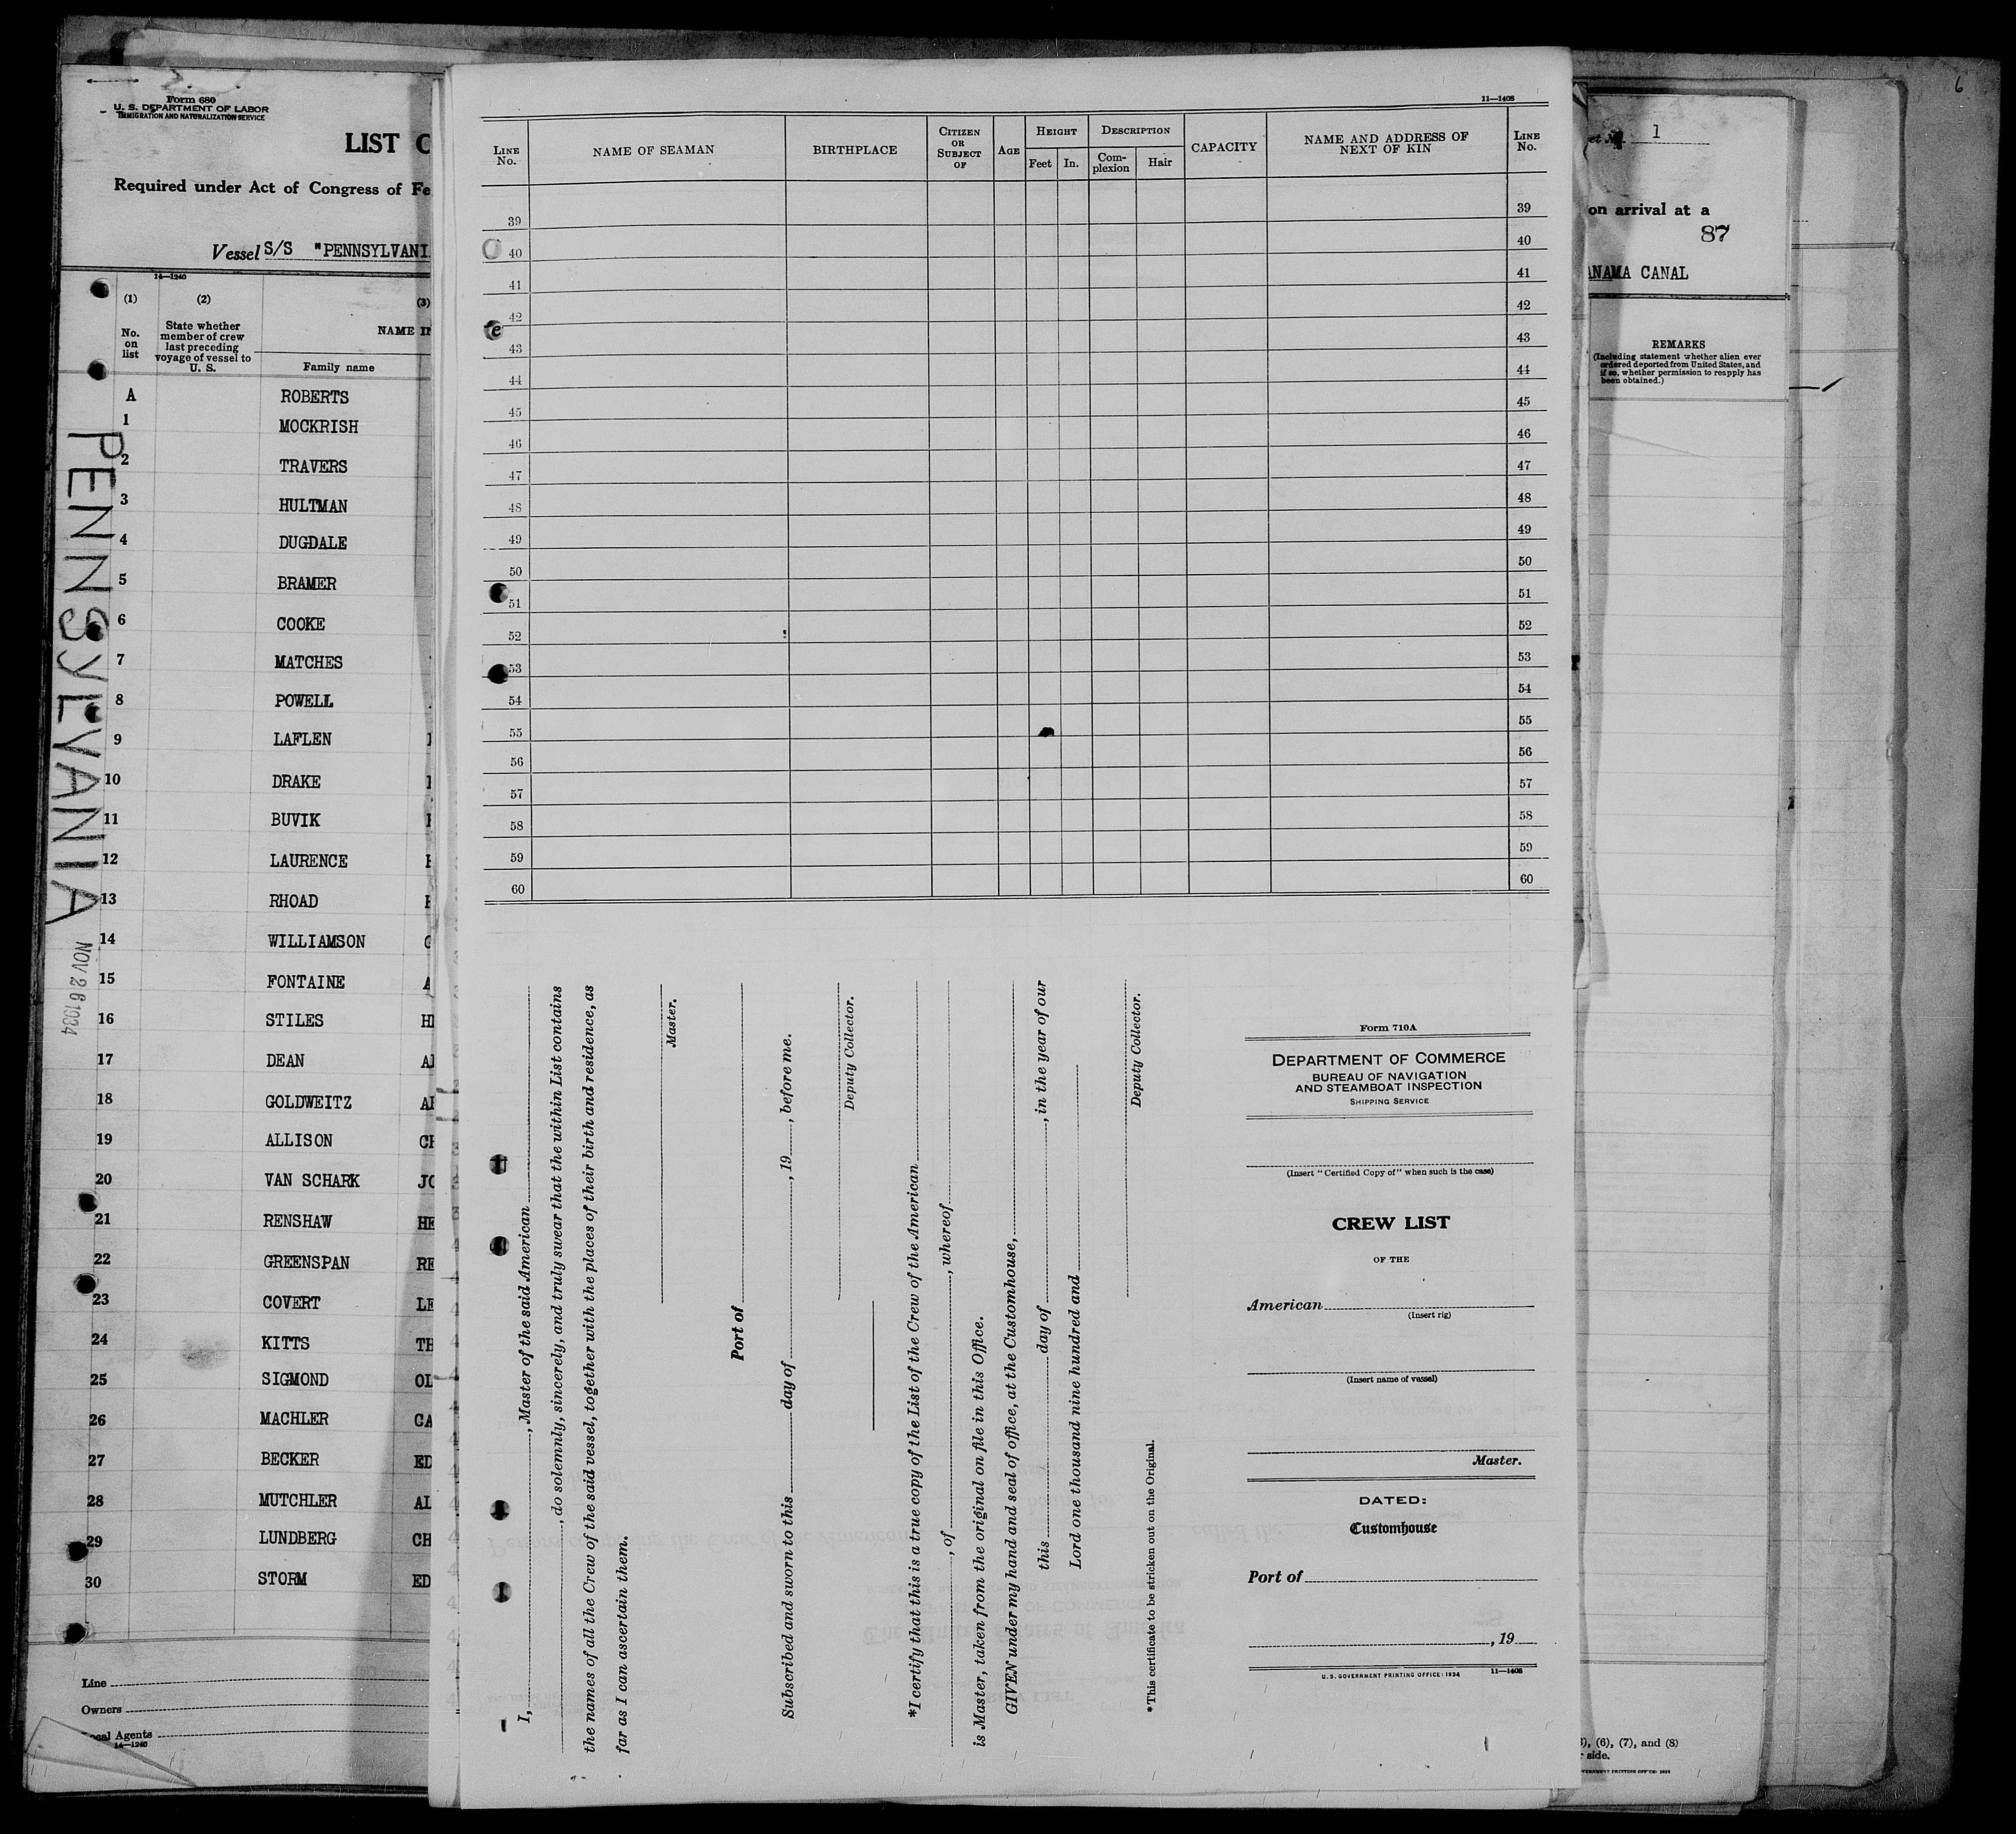 6
Form 680
U. S. DEPARTMENT OF LABOR
IMMIGRATION AND NATURALIZATION SERVICE
LIST
Required under Act of Congress of
Vessel S/S "PENNSYLVANI
14—1240
(1)
(2)
(3)
No.
on
list
State whether
member of crew
last preceding
voyage of vessel to
U. S.
NAME
Family name
A ROBERTS
1 MOCKRISH
2 TRAVERS
3 HULTMAN
4 DUGDALE
5 BRAMER
6 COOKE
7 MATCHES
8 POWELL
9 LAFLEN
10 DRAKE
11 BUVIK
12 LAURENCE
13 RHOAD
14 WILLIAMSON
15 FONTAINE
16 STILES
17 DEAN
18 GOLDWEITZ
19 ALLISON
20 VAN SCHARK
21 RENSHAW
22 GREENSPAN
23 COVERT
24 KITTS
25 SIGMOND
26 MACHLER
27 BECKER ED
28 MUTCHLER AL
29 LUNDBERG CH
30 STORM ED
PENNSYLVANIA
NOV 26 1934
Line
Owners
Agents
14—1240
11—1408
LINE
No.
NAME OF SEAMAN
BIRTHPLACE
CITIZEN
OR
SUBJECT
OF
AGE
HEIGHT
Feet
In.
DESCRIPTION
Com-
plexion
Hair
CAPACITY
NAME AND ADDRESS OF
NEXT OF KIN
LINE
No.
39 39
40 40
41 41
42 42
43 43
44 44
45 45
46 46
47 47
48 48
49 49
50 50
51 51
52 52
53 53
54 54
55 55
56 56
57 57
58 58
59 59
60 60
I, , Master of the said American
, do solemnly, sincerely, and truly swear that the within List contains
the names of all the Crew of the said vessel, together with the places of their birth and residence, as
far as I can ascertain them.
Master.
Port of
Subscribed and sworn to this day of , 19 , before me.
Deputy Collector.
*I certify that this is a true copy of the List of the Crew of the American
, of , whereof
is Master, taken from the original on file in this Office.
GIVEN under my hand and seal of office, at the Customhouse,
this day of , in the year of our
Lord one thousand nine hundred and
Deputy Collector.
*This certificate to be stricken out on the Original.
Form 710A
DEPARTMENT OF COMMERCE
BUREAU OF NAVIGATION
AND STEAMBOAT INSPECTION
SHIPPING SERVICE
(Insert "Certified Copy of" when such is the case)
CREW LIST
OF THE
American
(Insert rig)
(Insert name of vessel)
Master.
DATED:
Customhouse
Port of
, 19
U. S. GOVERNMENT PRINTING OFFICE: 1934 11—1408
1
on arrival at a
87
ANAMA CANAL
REMARKS
(Including statement whether alien ever
ordered deported from United States, and
if so, whether permission to reapply has
been obtained.)
, (6), (7), and (8)
side.